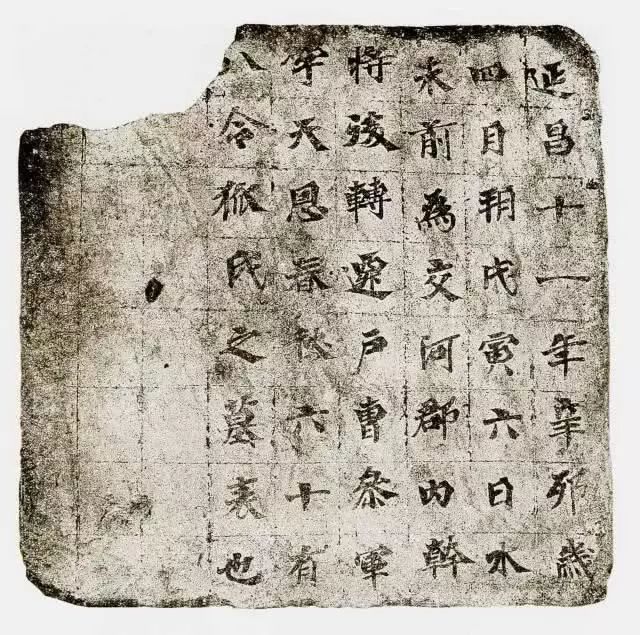 延昌十一年辛卯歲
四月朔戊寅六日水
未前爲交河郡内幹
將後轉遷戶曹參軍
字天恩春秋六十有
八令狐氏之墓表也